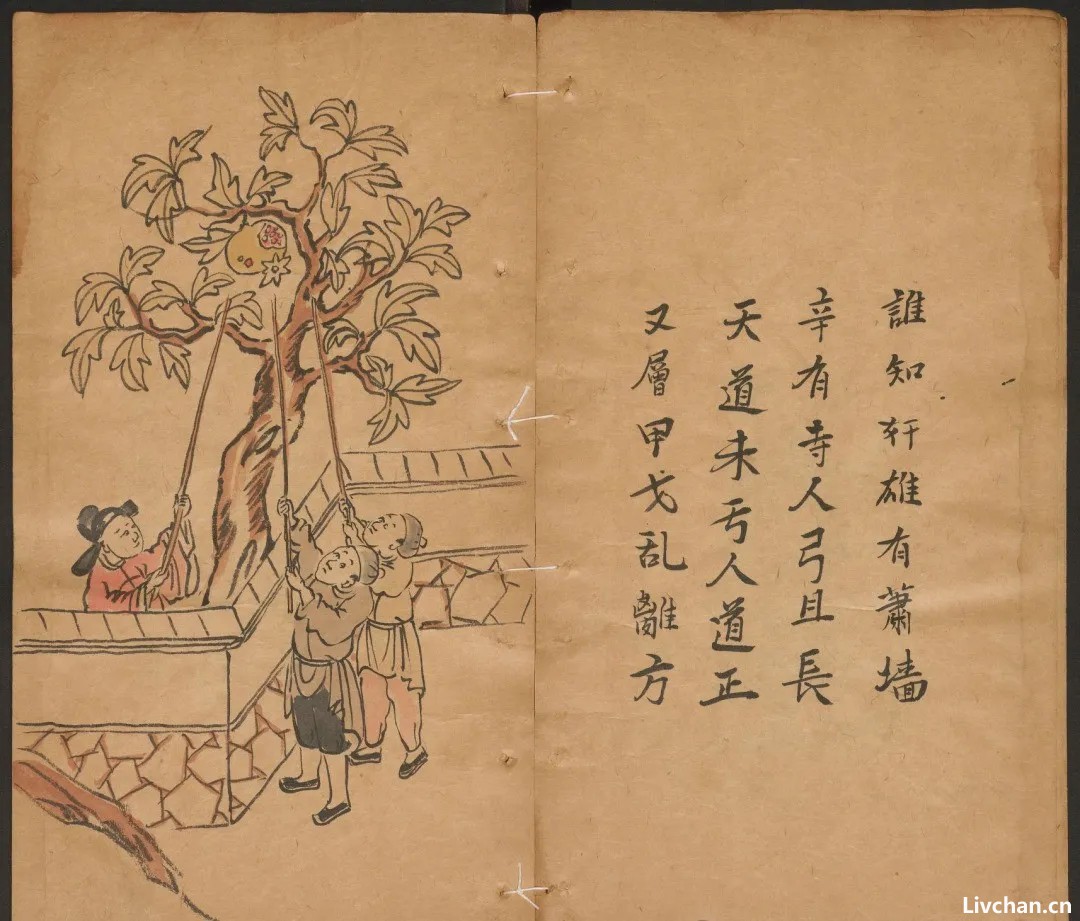 誰知軒雄有蕭墻
辛有寺人弓且長
天道未亏人道正
又層甲戈乱離方
Livchan.cn